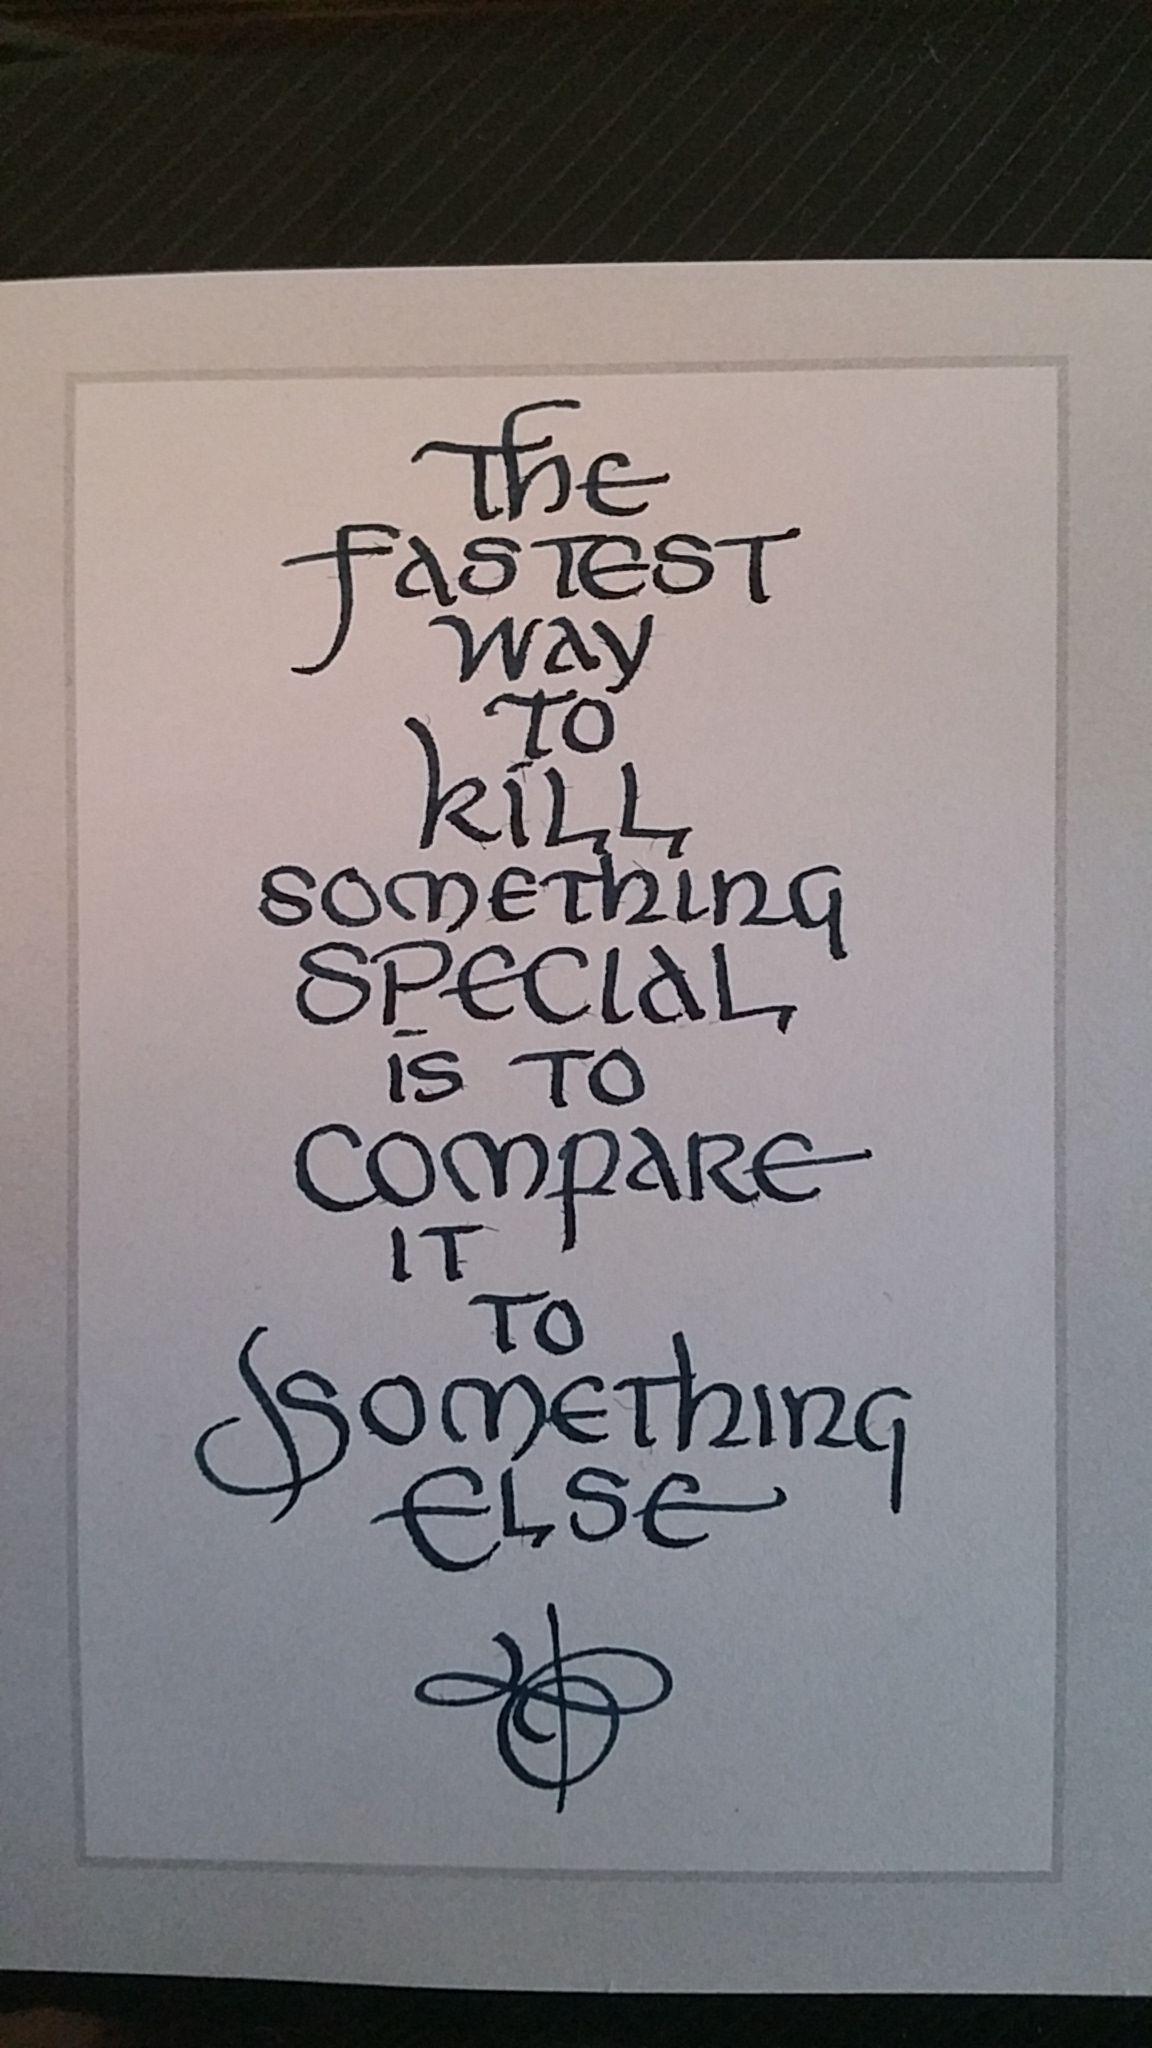 The
fastest
way
to
kill
something
special
is to
compare
it
to
something
else